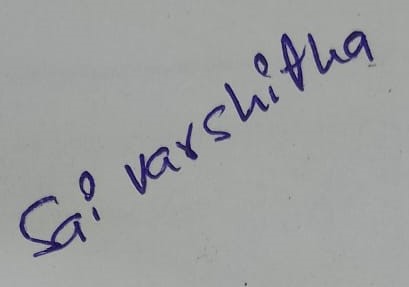 Sai varshitha